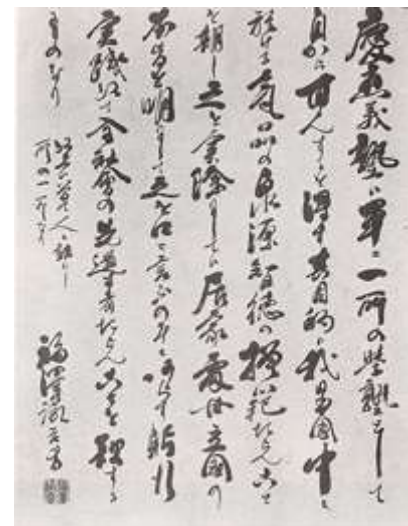 慶應義塾は単に一所の学塾として
自から甘んずるを得ず其目的は我日本国中に
於ける気品の泉源智徳の模範たらんことを
期し之を実際にしては居家処世立国の
本旨を明にして之を口に言ふのみにあらず躬行
実践以て全社会の先導者たらんことを欲する
ものなり
以上は曾て人に語りし
所の一節なり
福澤諭吉書